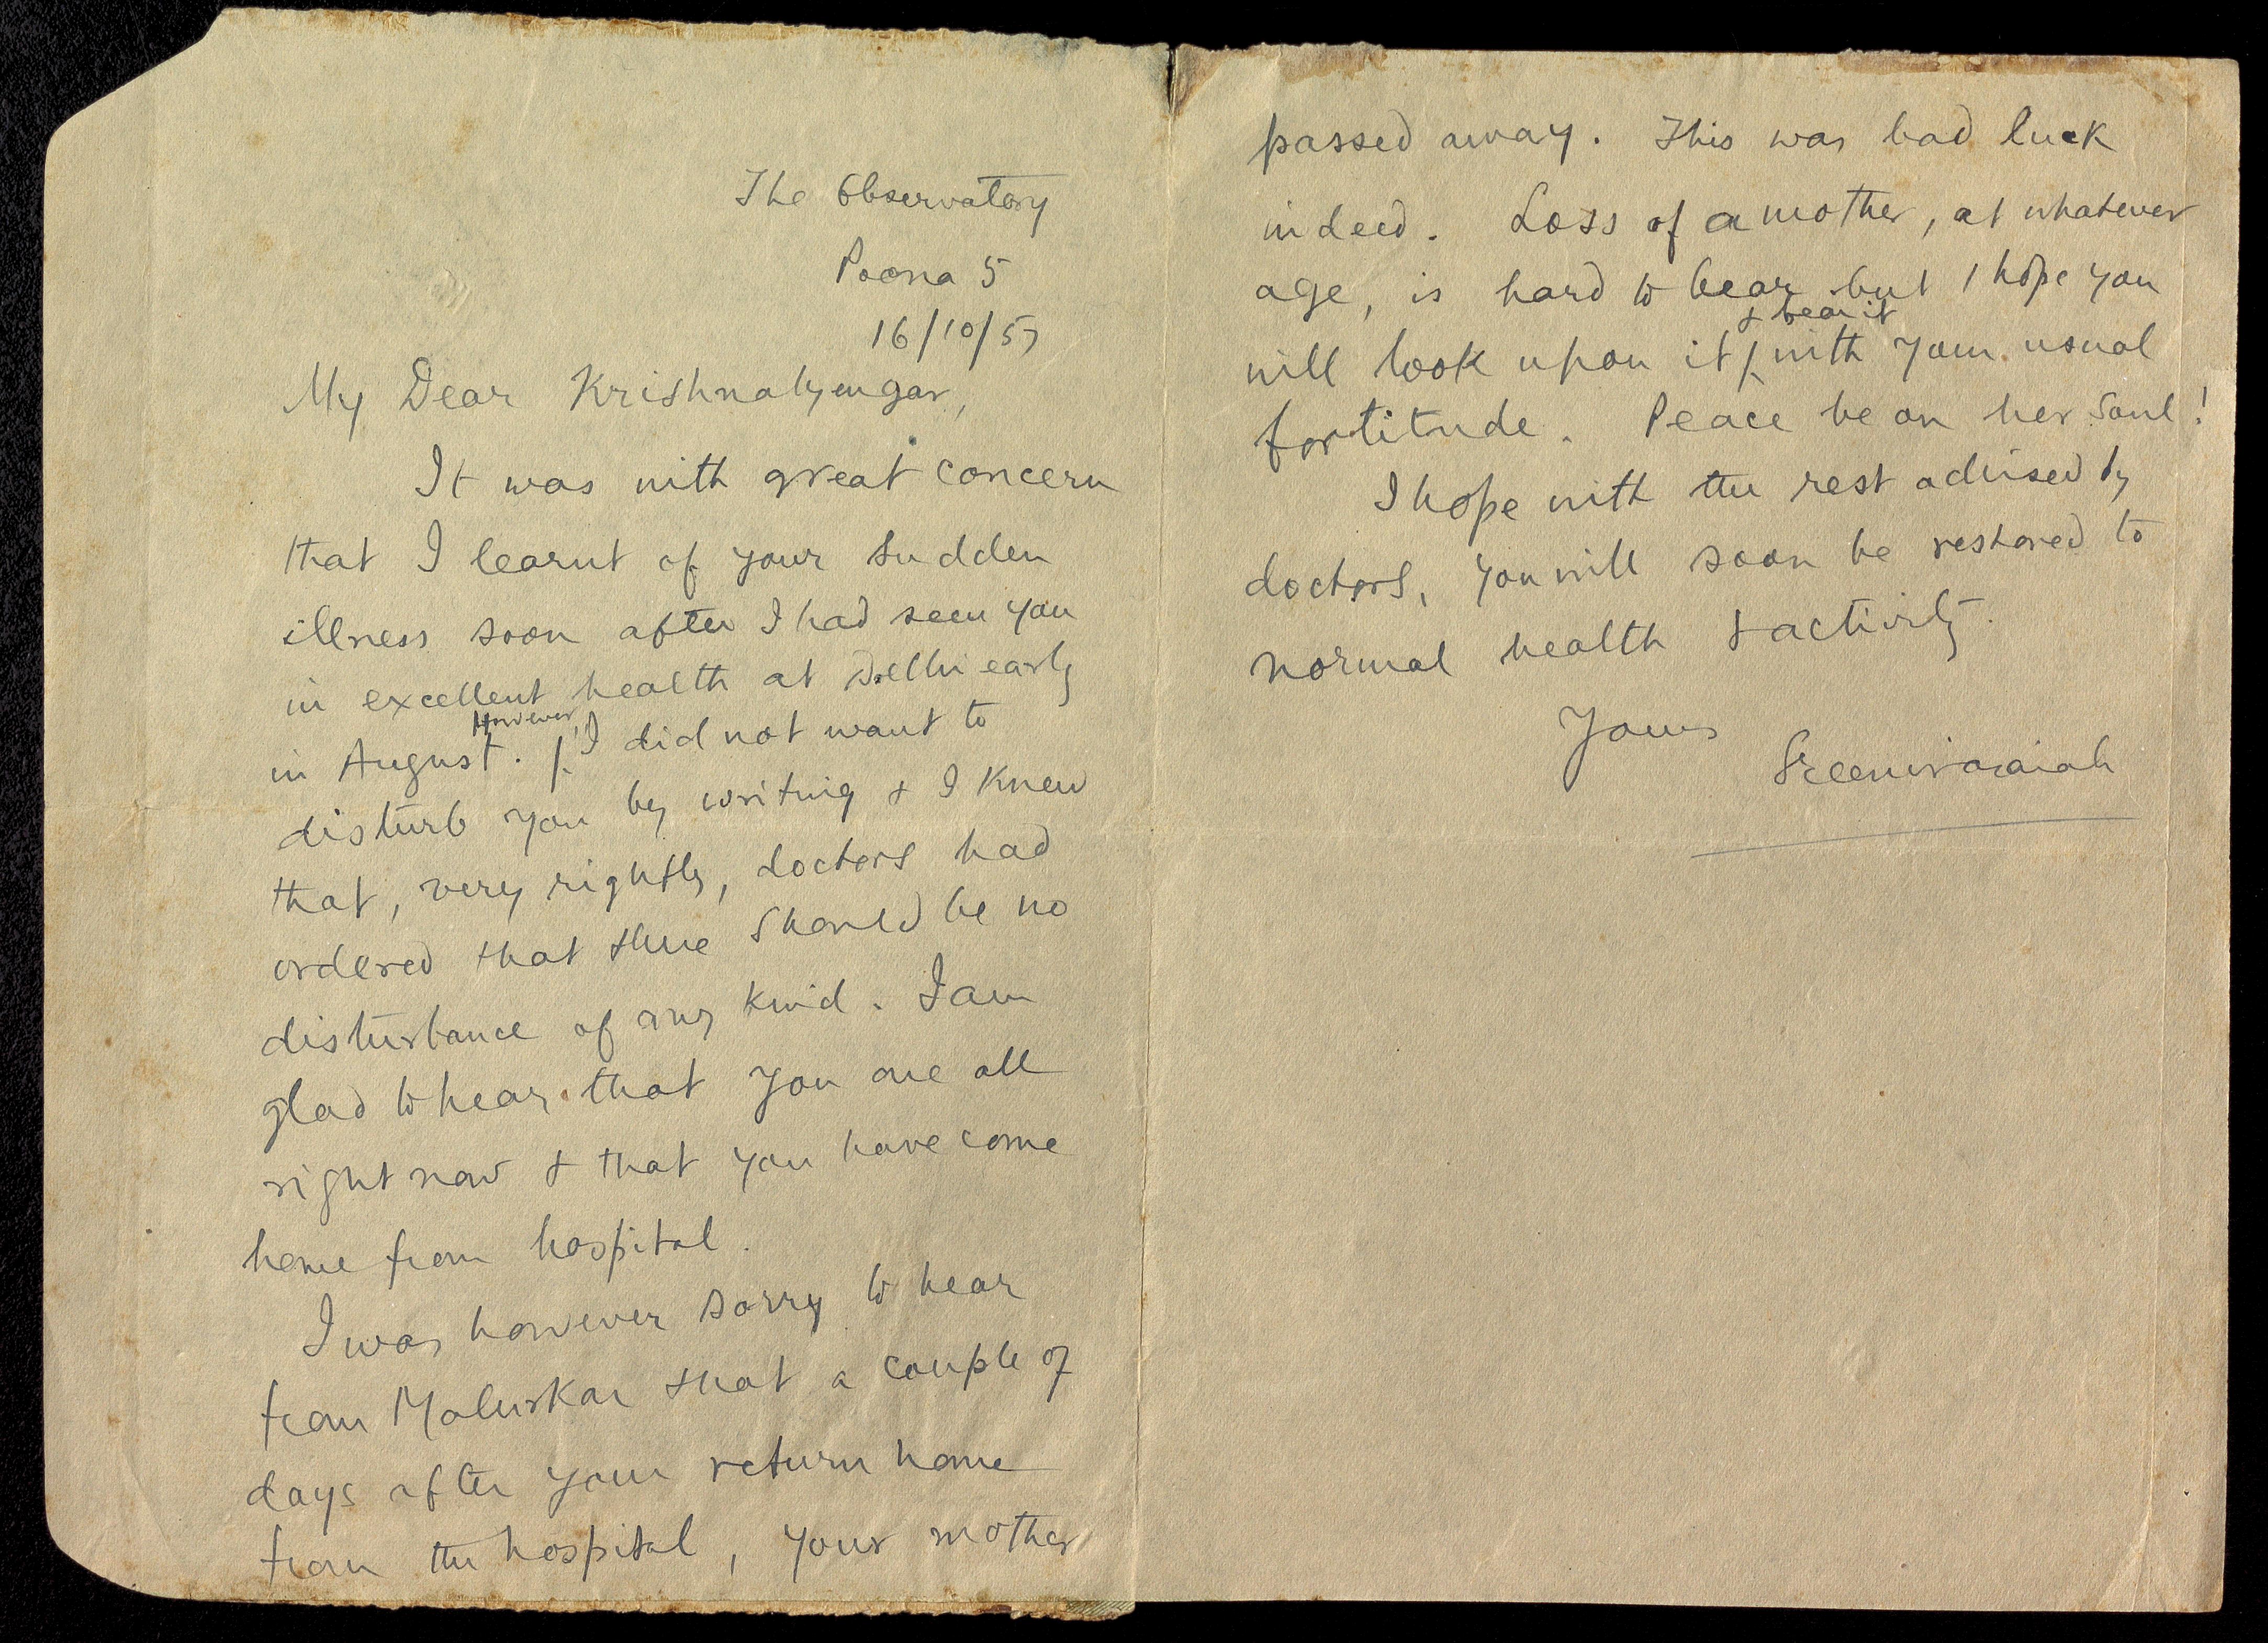 The Observatory
Poona 5
16/10/57
My Dear KrishnaIyengar,
It was with great concern
that I learnt of your sudden
illness soon after I had seen you
in excellent health at Delhi early
in August. However, I did not want to
disturb you by writing & I knew
that, very rightly, doctors had
ordered that there should be no
disturbance of any kind. I am
glad to hear that you are all
right now & that you have come
home from hospital.
I was however sorry to hear
from Malurkar that a couple of
days after your return home
from the hospital, your mother
passed away. This was bad luck
indeed. Loss of a mother, at whatever
age, is hard to bear but I hope you
will look upon it & bear it with your usual
fortitude. Peace be on her soul!
I hope with the rest advised by
doctors, you will soon be restored to
normal health & activity.
Yours
Sreenivasaiah